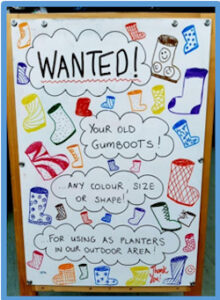 WANTED!
YOUR OLD
GUMBOOTS!
...ANY COLOUR, SIZE
OR SHAPE!
...FOR USING AS PLANTERS
IN OUR OUTDOOR AREA!
Thank
You